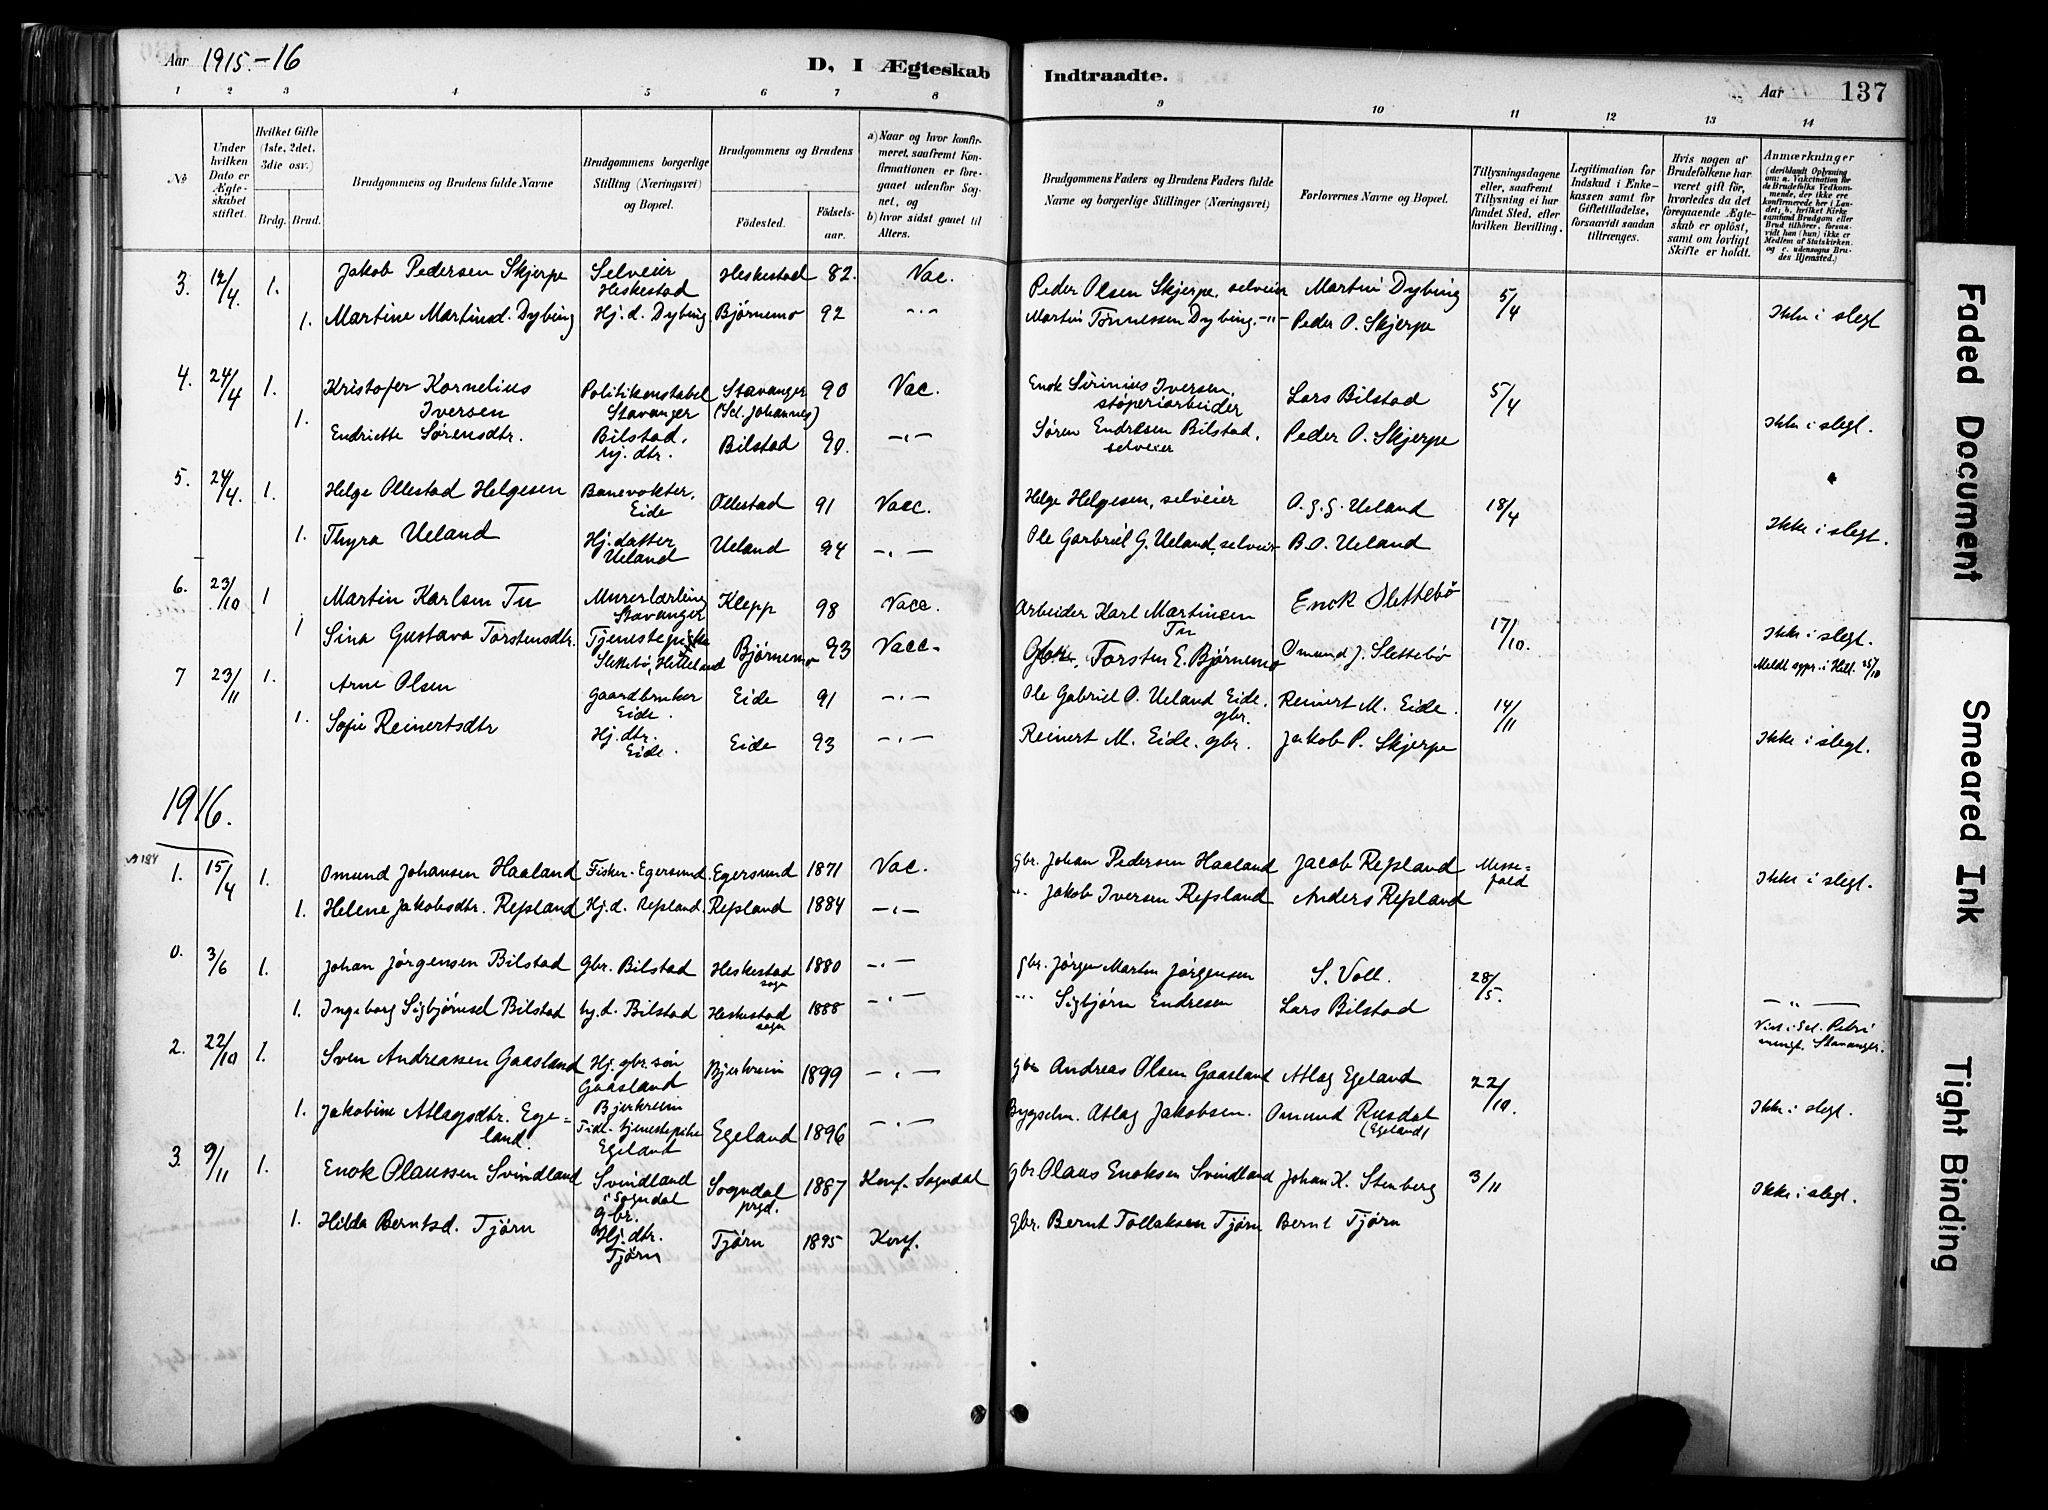 Aar 1915.-16
D, I Ægteskab Indtraadte.
Aar 137
1 2 3 4 5 6 7 8 9 10 11 12 13 14
No
Under hvilken Dato er Ægteskabet stiftet.
Hvilket Gifte (1ste, 2det, 3die osv.)
Brdg. Brud.
Brudgommens og Brudens fulde Navne
Brudgommens borgerlige Stilling (Næringsvei) og Bopæl.
Brudgommens og Brudens
Födested. Födsels-aar.
a) Naar og hvor konfirmeret, saafremt Konfirmationen er foregaaet udenfor Sognet, og
b) hvor sidst gaaet til Alters.
Brudgommens Faders og Brudens Faders fulde Navne og borgerlige Stillinger (Næringsvei)
Forlovernes Navne og Bopæl.
Tillysningsdagene eller, saafremt Tillysning ei har fundet Sted, efter hvilken Bevilling.
Legitimation for Indskud i Enkekassen samt for Giftetilladelse, forsaavidt saadan tiltrænges.
Hvis nogen af Brudefolkene har været gift för, hvorledes da det foregaaende Ægteskab er oplöst, samt om lovligt Skifte er holdt.
Anmærkninger (deriblandt Oplysning om: a. Vakcination for de Brudefolks Vedkommende, der ikke ere konfirmerede her i Landet; b. hvilket Kirkesamfund Brudgom eller Brud tilhörer, forsaavidt han (hun) ikke er Medlem af Statskirken, og c. udensogns Brudes Hjemsted.)
3. 12/4. 1. Jakob Pedersen Skjerpe Selveier Heskestad Heskestad 82. Vac. Peder Olsen Skjerpe, selveier Martin Dybing 5/4
1. Martine Martinsd. Dybing Hj. d. Dybing Bjørnemo 92 -"- Martin Tønnessen Dybing. -"- Peder O. Skjerpe Ikke i slegt
4. 24/4 1. Kristofer Kornelius Iversen Politikonstabel Stavanger Stavanger (Sct. Johannes) 90 Vac. Enok Sirinius Iversen, støperiarbeider Lars Bilstad 5/4
1. Endriette Sørensdtr. Bilstad, hj. dtr. Bilstad 90. -"- Søren Endresen Bilstad, selveier Peder O. Skjerpe Ikke i slegt.
5. 24/4. 1. Helge Ollestad Helgesen Banevokter, Eide Ollestad 91 Vacc. Helge Helgesen, selveier O. G. G. Ueland 18/4
1. Thyra Ueland Hj. datter Ueland Ueland 94 -"- Ole Gabriel G. Ueland, selveier B. O. Ueland Ikke i slegt.
6. 23/10 1 Martin Karlsen Tu Murerlærling Stavanger Klepp 98 Vacc. Arbeider Karl Martinsen Tu Enok Slettebø 17/10.
1 Sina Gustava Torstensdtr. Tjenestepike Slettebø, Helleland Bjørnemo 93 Vacc. Torsten E. Bjørnemo Omund J. Slettebø Ikke i slegt.
Meldt sypr. i Hell. 25/10
7 23/11 1. Arne Olsen Gaardbruker Eide. Eide 91 -"- Ole Gabriel O. Ueland Eide, gbr. Reinert M. Eide. 14/11
1. Sofie Reinertsdtr Hj. dtr. Eide. Eide 93 -"- Reinert M. Eide. gbr. Jakob P. Skjerpe Ikke i slegt.
1916.
1. 15/4 1. Omund Johansen Haaland Fisker. Egersund. Egersund 1871 Vac. gbr. Johan Pedersen Haaland Jacob Repsland Messefald Ikke i slegt.
1. Helene Jakobsdtr. Repsland Hj. d. Repsland. Repsland 1884 -"- " Jakob Iversen Repsland Anders Repsland
0. 3/6 1. Johan Jørgensen Bilstad Gbr. Bilstad Heskestad sogn 1880 -"- gbr. Jørgen Martin Jørgensen S. Voll. 28/5.
1. Ingeborg Sigbjørnsd Bilstad hj. d. Bilstad Heskestad sogn 1888 -"- -"- Sigbjørn Endresen Lars Bilstad -"-
2. 22/10 1. Sven Andreassen Gaasland Hj. gbr. søn Gaasland Bjerkreim Bjerkreim 1899 -"- gbr Andreas Olsen Gaasland Atlag Egeland 22/10. Viet i Sct. Petri menigh. Stavanger.
1. Jakobine Atlagsdtr. Egeland. Tidl. tjenestepike Egeland Egeland 1896 -"- Bygselm. Atlag Jakobsen. Omund Rusdal (Egeland) Ikke i slegt.
3. 9/11 1. Enok Olaussen Svindland Svindland i Sogndal gbr. Sogndal prgd. 1887 Konf. Sogndal gbr Olaus Enoksen Svindland Johan K. Stenberg 3/11 Ikke i slegt.
1. Hilda Berntsd. Tjørn Hj. dtr. Tjørn Tjørn 1895 Konf. gbr. Bernt Tollaksen Tjørn Bernt Tjørn
Faded Document
Smeared Ink
Tight Binding